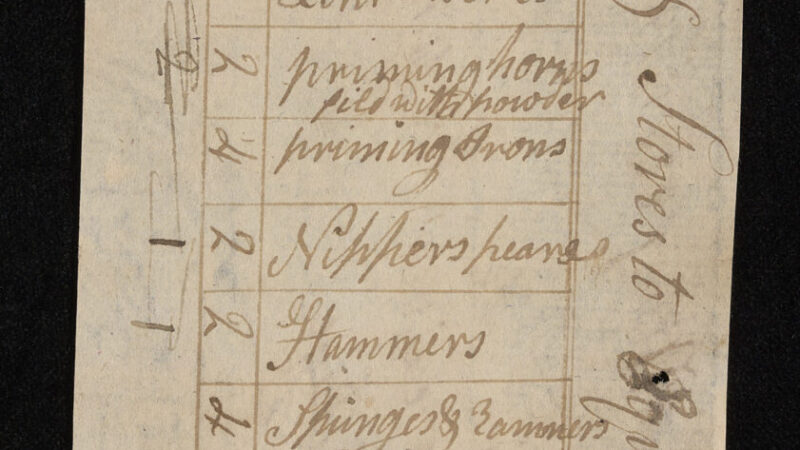 2 priming horns
fild with powder
4 priming Irons
2 Nippers peare
2 Hammers
4 Spunges & Rammers
Stores to
2
1
1